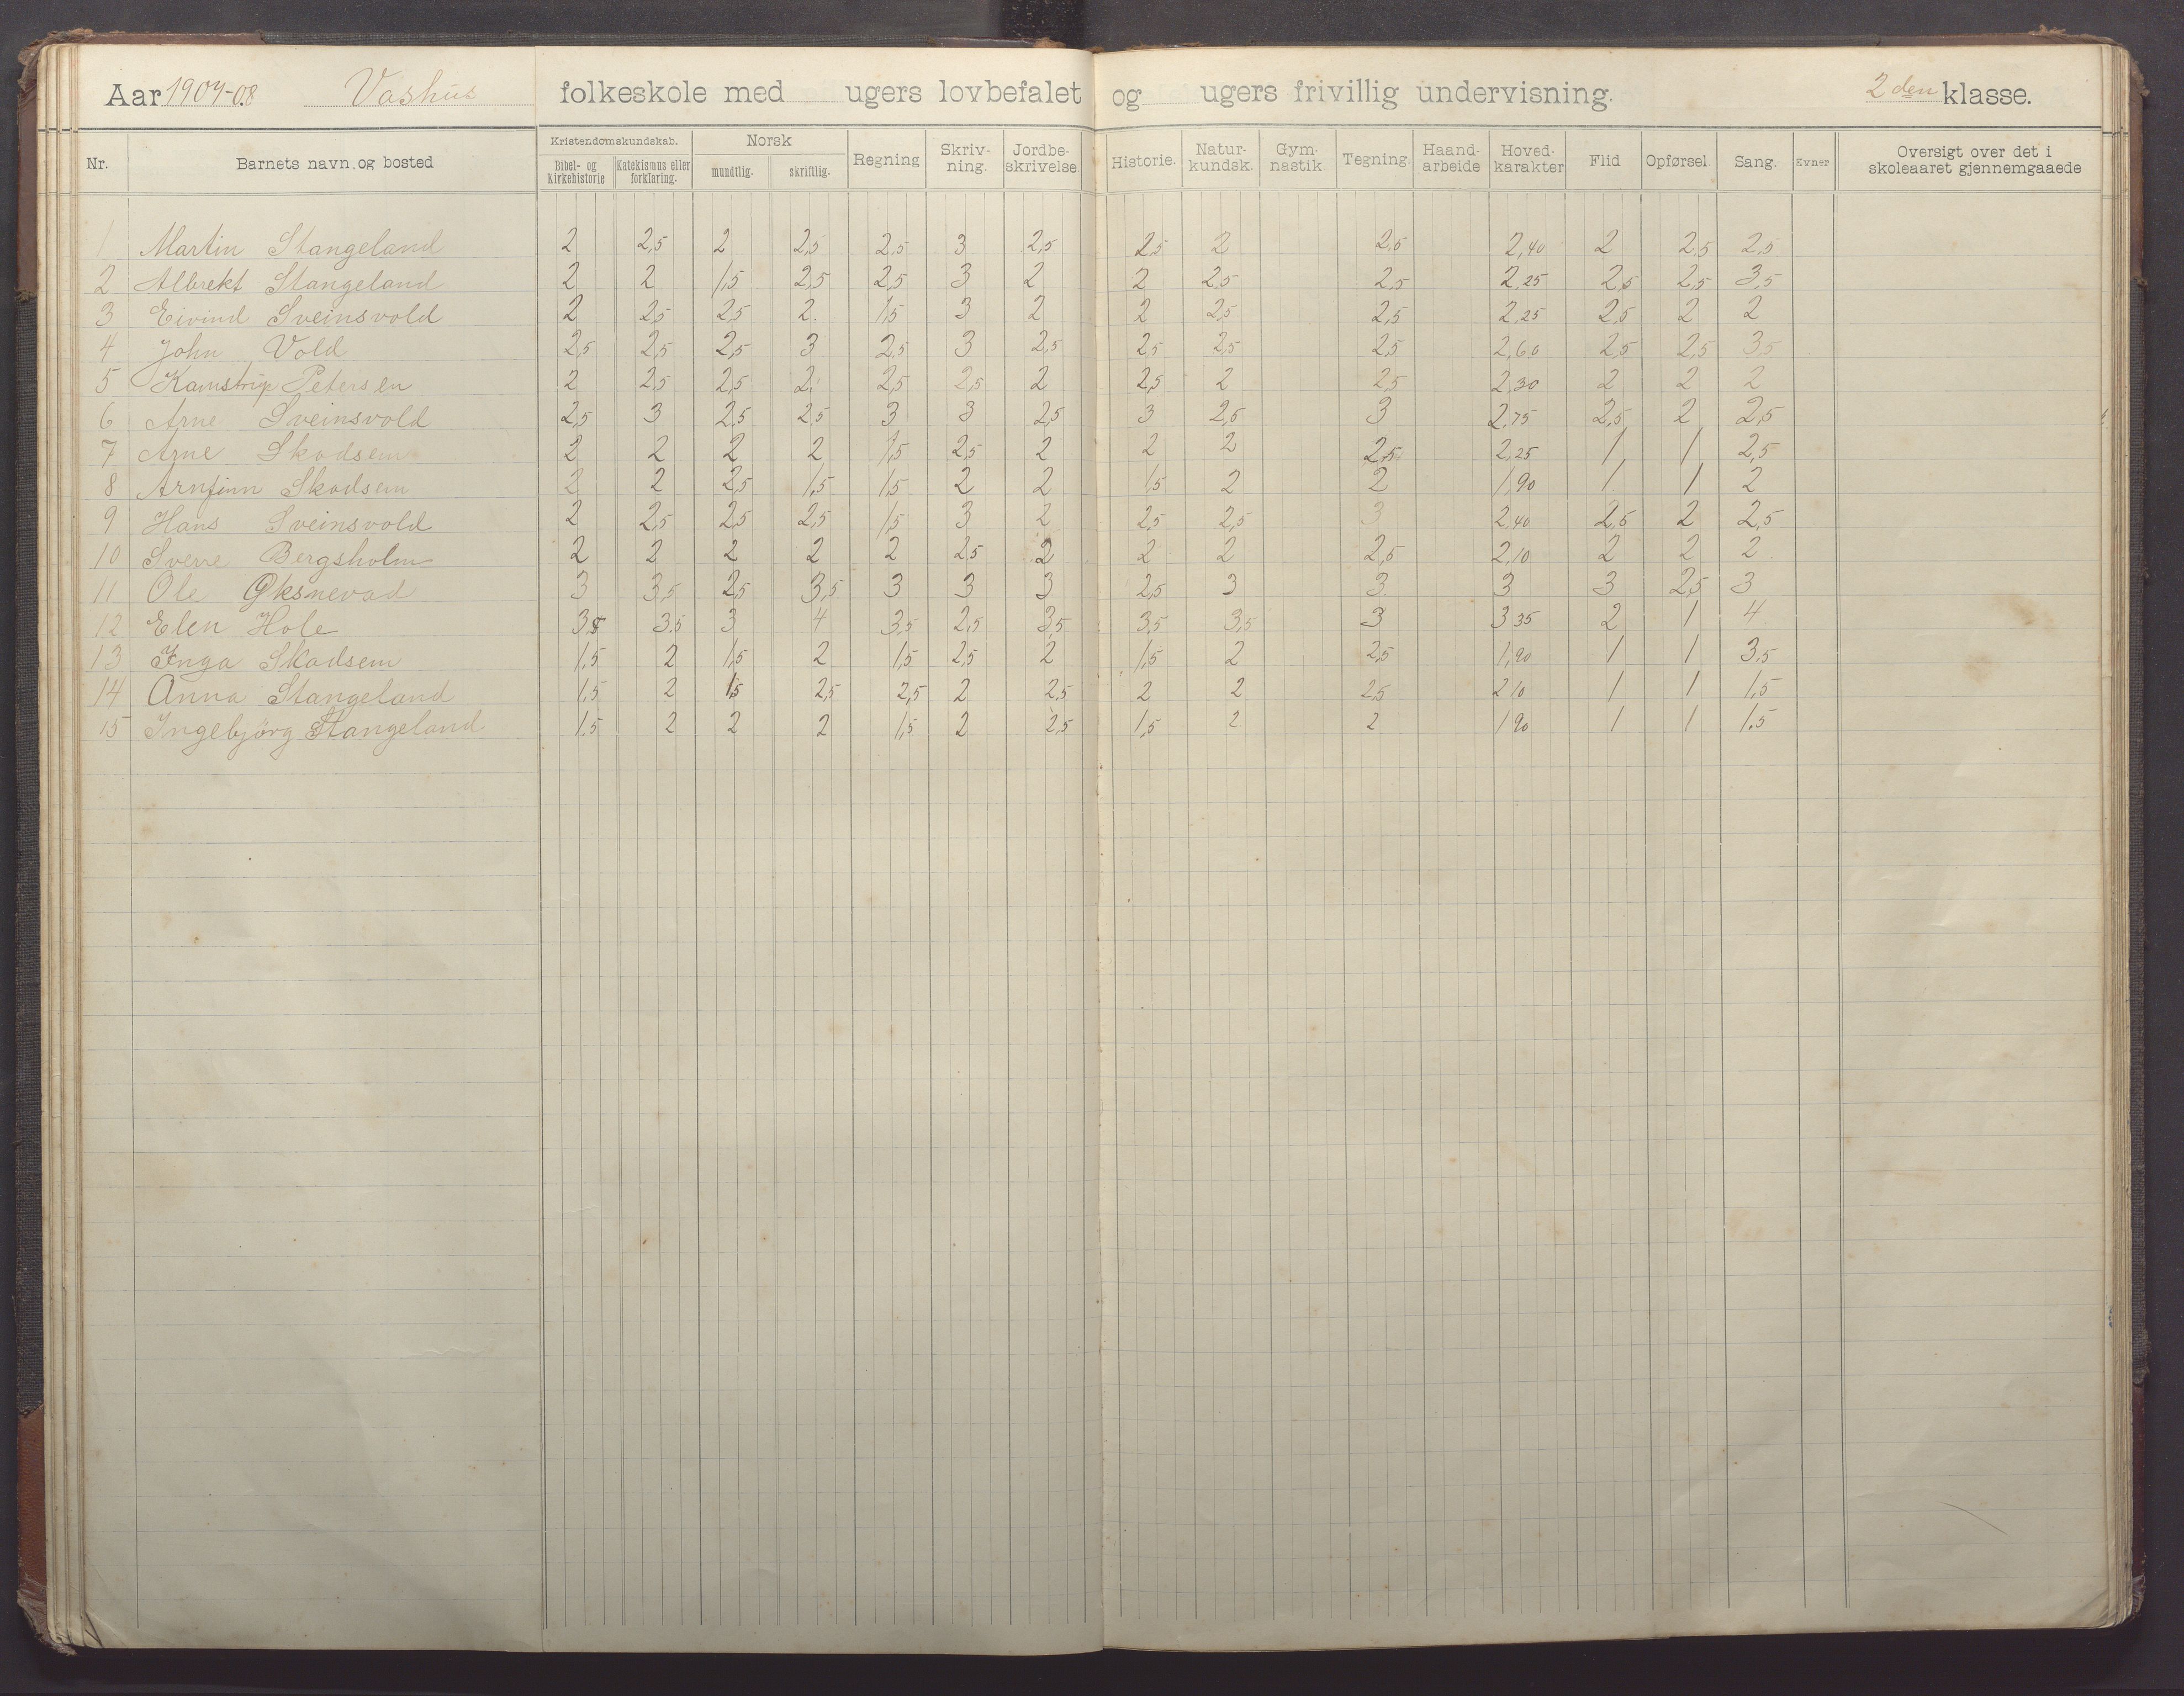 Aar 1907-08 Vashus folkeskole med ugers lovbefalet og ugers frivillig undervisning. 2den klasse.
Nr. Barnets navn og bosted Kristendomskundskab. Bibel- og Kirkehistorie Katekismus eller forklaring. Norsk mundtlig. skriftlig. Regning Skriv-ning. Jordbe-skrivelse. Historie. Natur-kundsk. Gym-nastik. Tegning. Haand-arbeide Hoved-karakter Flid Opførsel. Sang. Evner Oversigt over det i skoleaaret gjennemgaaede
1 Martin Stangeland 2 2,5 2 2,5 2,5 3 2,5 2,5 2 2,5 2,40 2 2,5 2,5
2 Albrekt Stangeland 2 2 1,5 2,5 2,5 3 2 2 2,5 2,5 2,25 2,5 2,5 3,5
3 Eivind Sveinsvold 2 2,5 2,5 2. 1,5 3 2 2 2,5 2,5 2,25 2,5 2 2
4 John Vold 2,5 2,5 2,5 3 2,5 3 2,5 2,5 2,5 2,5 2,60 2,5 2,5 3,5
5 Kamstrup Petersen 2 2,5 2,5 2, 2,5 2,5 2 2,5 2 2,5 2,30 2 2 2
6 Arne Sveinsvold 2,5 3 2,5 2,5 3 3 2,5 3 2,5 3 2,75 2,5 2 2,5
7 Arne Skadsem 2 2 2 2 1,5 2,5 2 2 2 2,5 2,25 1 1 2,5
8 Arnfinn Skadsem 2 2 2,5 1,5 1,5 2 2 1,5 2 2 1,90 1 1 2
9 Hans Sveinsvold 2 2,5 2,5 2,5 1,5 3 2 2,5 2,5 3 2,40 2,5 2 2,5
10 Sverre Bergsholm 2 2 2 2 2 2,5 2 2 2 2,5 2,10 2 2 2
11 Ole Øksnevad 3 3,5 2,5 3,5 3 3 3 2,5 3 3 3 3 2,5 3
12 Elen Hole 3,5 3,5 3 4 3,5 2,5 3,5 3,5 3,5 3 3 35 2 1 4
13 Inga Skadsem 1,5 2 1,5 2 1,5 2,5 2 1,5 2 2,5 1,90 1 1 3,5
14 Anna Stangeland 1,5 2 1,5 2,5 2,5 2 2,5 2 2 2,5 2 10 1 1 1,5
15 Ingebjörg Stangeland 1,5 2 2 2 1,5 2 2,5 1,5 2 2 1 90 1 1 1,5